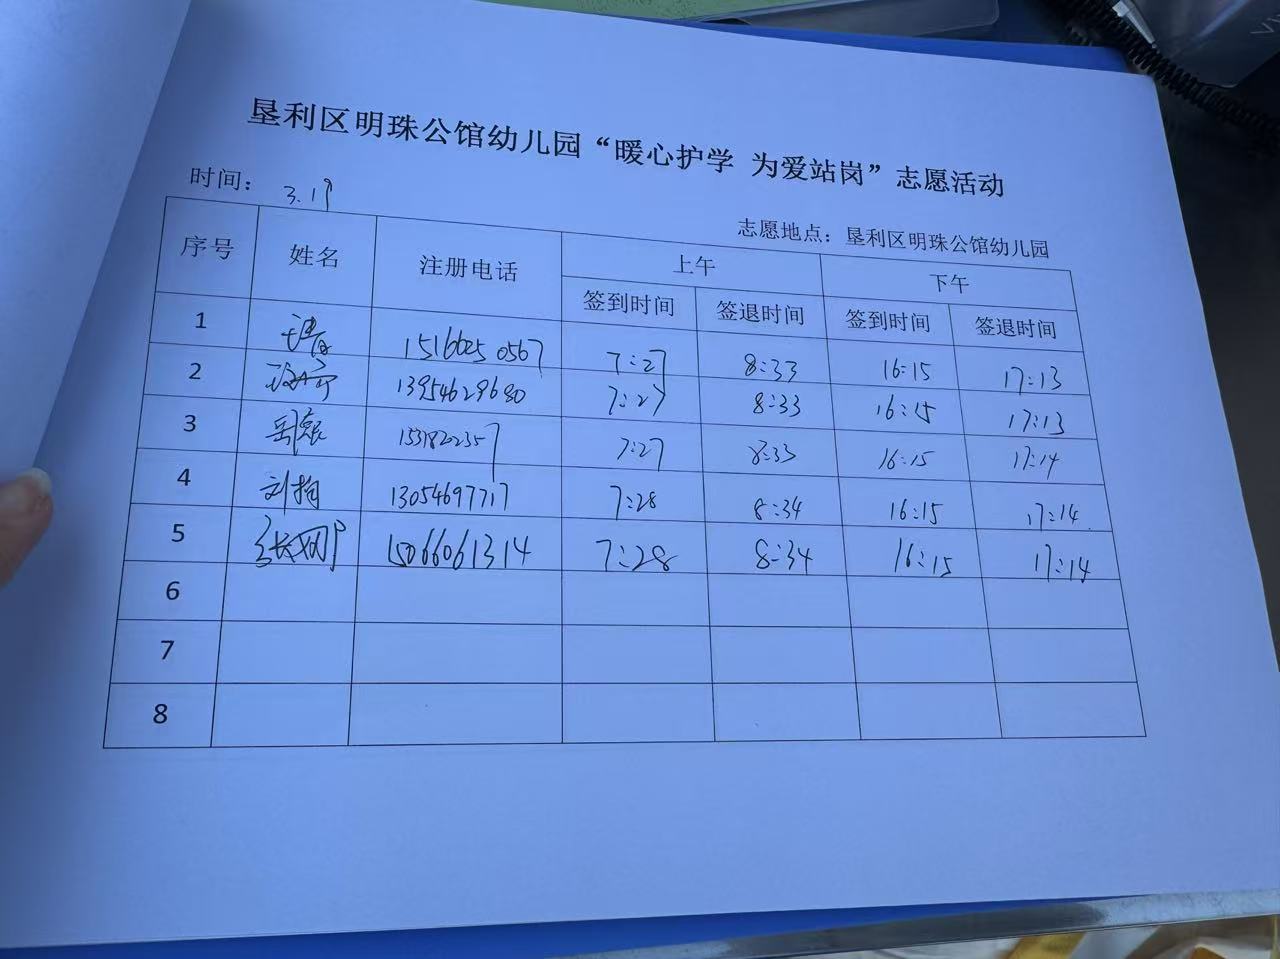 垦利区明珠公馆幼儿园“暖心护学 为爱站岗”志愿活动
时间：
志愿地点：垦利区明珠公馆幼儿园
序号 姓名 注册电话 上午 下午
签到时间 签退时间 签到时间 签退时间
1 7:27 8:33 16:15 17:13
2 13954629680 7:27 8:33 16:15 17:13
3 7:27 8:33 16:15 17:14
4 13054697717 7:28 8:34 16:15 17:14
5 15066061314 7:28 8:34 16:15 17:14
6
7
8